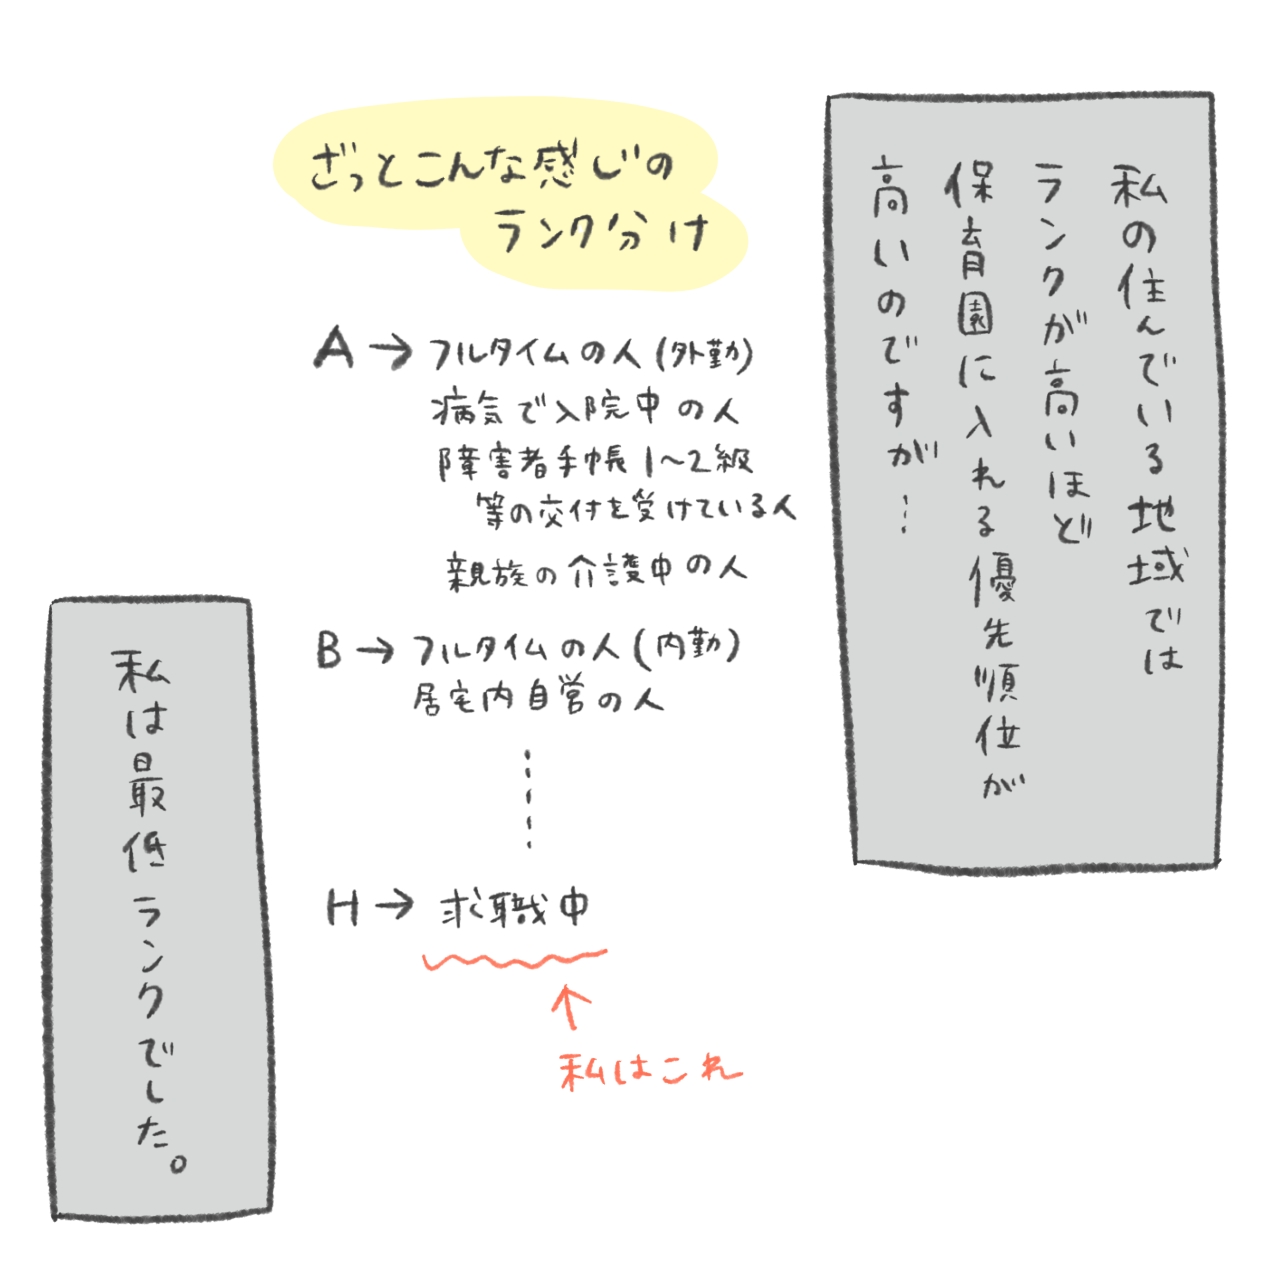 私の住んでいる地域では
ランクが高いほど
保育園に入れる優先順位が
高いのですが…
ざっとこんな感じの
ランク分け
A→フルタイムの人(外勤)
病気で入院中の人
障害者手帳1~2級
等の交付を受けている人
親族の介護中の人
B→フルタイムの人(内勤)
居宅内自営の人
H→求職中
私はこれ
私は最低ランクでした。